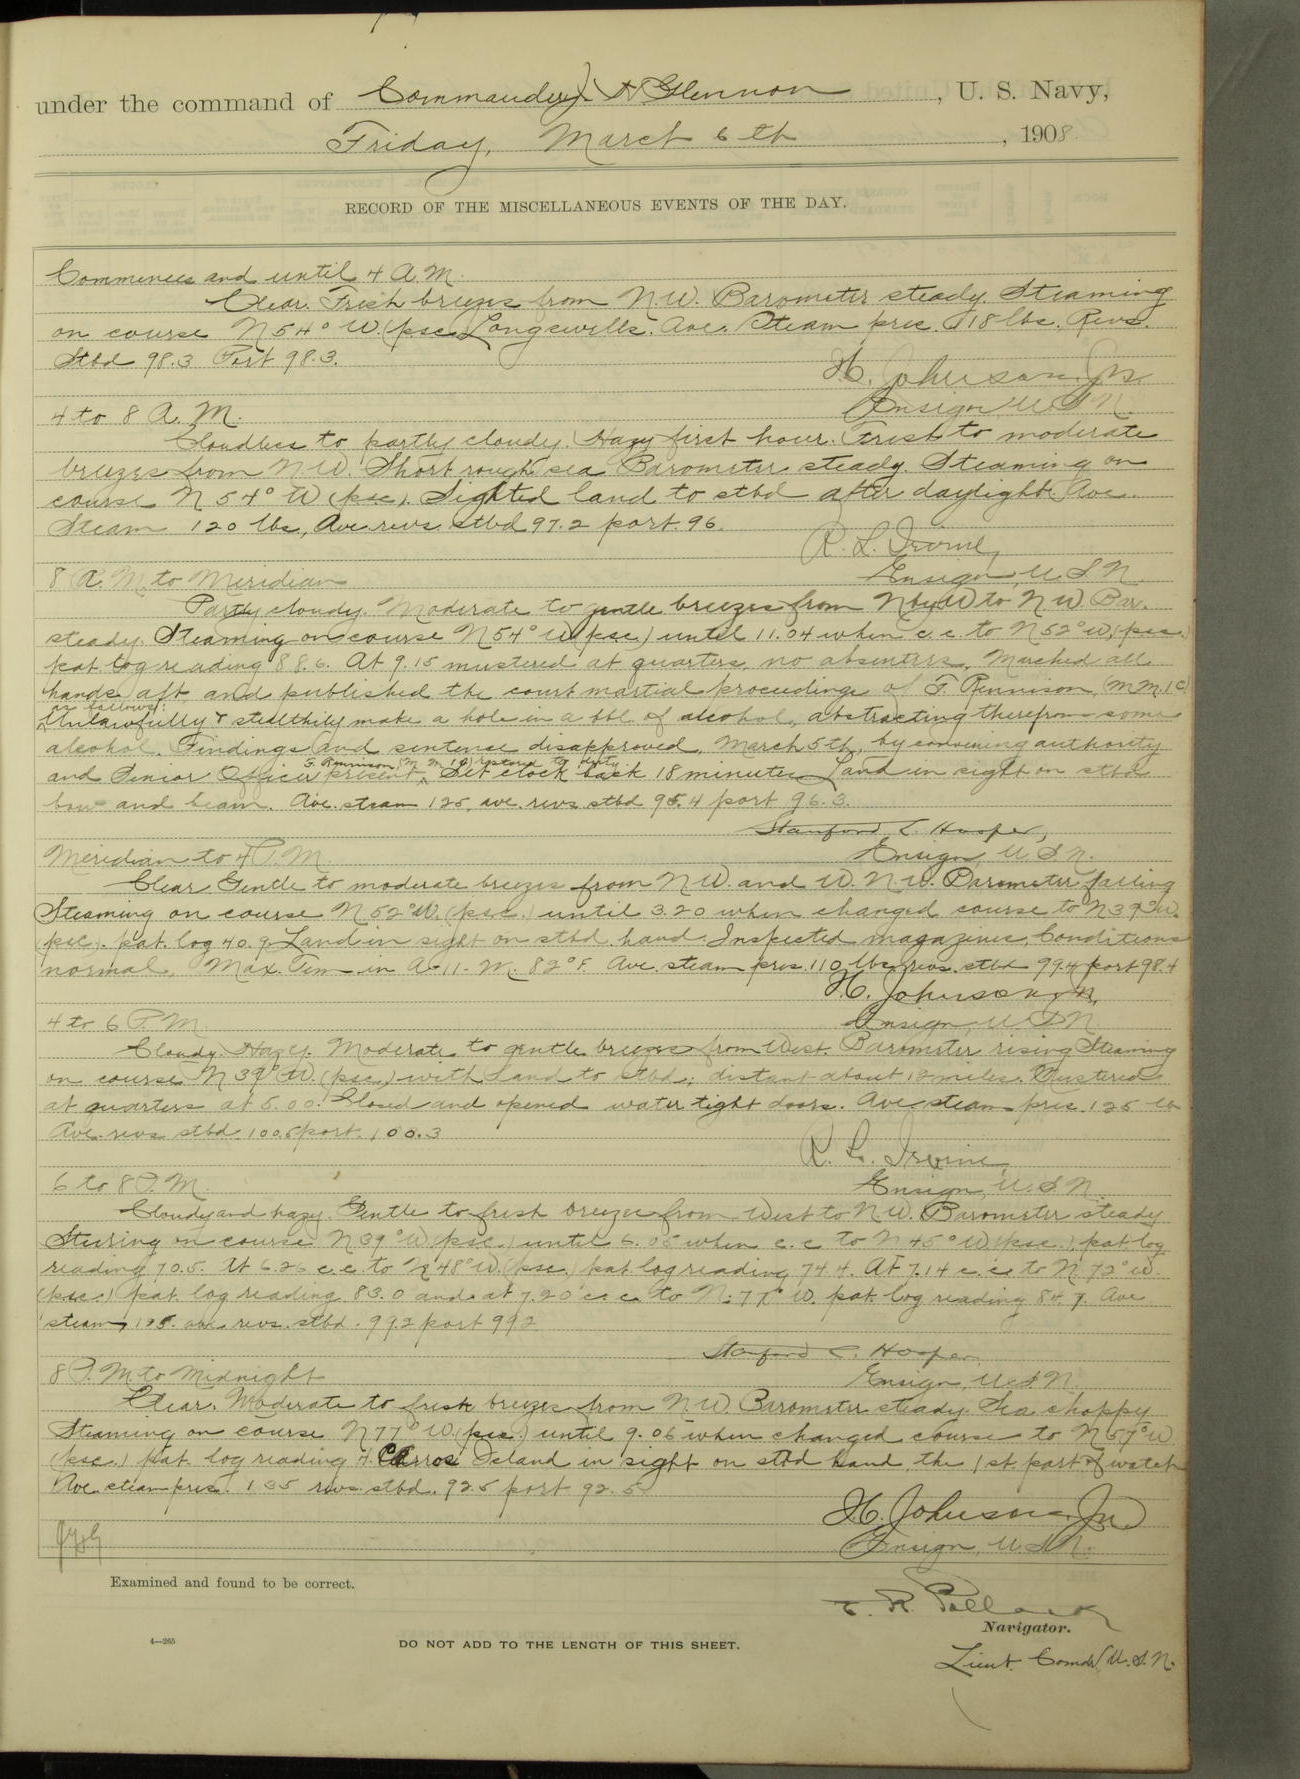 under the command of Commander J H Glennon, U. S. Navy,
Friday, March 6th, 1908
RECORD OF THE MISCELLANEOUS EVENTS OF THE DAY.
Commences and until 4 A.M.
Clear. Fresh breezes from N.W. Barometer steady. Steaming
on course N 54° W. (psc) Long swells. Ave. Steam pres. 118 lbs. Revs.
Stbd 98.3 Port 98.3.
H. Johnson, Jr.
Ensign U.S.N.
4 to 8 A.M.
Cloudless to partly cloudy. Hazy first hour. Fresh to moderate
breezes from N.W. Short rough sea Barometer steady. Steaming on
course N 54° W (psc). Sighted land to stbd after daylight. Ave.
Steam 120 lbs, Ave. revs. stbd 97.2 port. 96.
R. L. Irvine,
Ensign, U.S.N.
8 A.M. to Meridian
Partly cloudy. Moderate to gentle breezes from N by W to N W Bar.
steady. Steaming on course N 54° W (psc.) until 11.04 when c.c. to N 52° W. (psc.)
pat. log reading 88.6. At 9.15 mustered at quarters, no absentees. Marched all
hands aft and published the court martial proceedings of F. Rennison, (M M 1C)
as follows:
Unlawfully & stealthily make a hole in a bbl. of alcohol, abstracting therefrom some
alcohol. Findings and sentence disapproved, March 5th, by convening authority
F. Rennison (M M 1C) restored to duty.
and Senior Officer present ^ Set clock back 18 minutes Land in sight on stbd
bow and beam. Ave. steam 125, ave. revs. stbd 95.4 port 96.3.
Stanford C. Hooper,
Ensign, U.S.N.
Meridian to 4 P.M.
Clear Gentle to moderate breezes from N.W. and W.N.W. Barometer falling
Steaming on course N 52° W. (psc.) until 3.20 when changed course to N 39° W.
(psc). pat. log 40.9 Land in sight on stbd. hand. Inspected magazines, Conditions
normal. Max. Tem in A-11-M. 82° F. Ave. steam pres. 110 lbs revs. stbd 99.4 port 98.4
H. Johnson, Jr.,
Ensign, U.S.N.
4 to 6 P.M.
Cloudy. Hazy. Moderate to gentle breezes from West. Barometer rising Steaming
on course N 39° W. (psc.) with land to stbd; distant about 12 miles. Mustered
at quarters at 5.00. Closed and opened water tight doors. Ave. steam pres. 125 lb
Ave. revs. stbd. 100.5 port. 100.3
R. L. Irvine,
Ensign, U.S.N.
6 to 8 P.M.
Cloudy and hazy. Gentle to fresh breezes from West to N.W. Barometer steady
Steering on course N 39° W (psc.) until 6.05 when c.c. to N 45° W. (psc.), pat. log
reading 70.5. At 6.26 c.c. to N 48° W. (psc.) pat. log reading 74.4. At 7.14 c.c. to N 72° W.
(psc.) pat. log reading 83.0 and at 7.20 c.c. to N. 77° W. pat. log reading 84.7. Ave
steam, 125. ave. revs. stbd. 99.2 port 99.2
Stanford C. Hooper,
Ensign, U.S.N.
8 P.M. to Midnight
Clear. Moderate to fresh breezes from N.W. Barometer steady. Sea choppy
Steaming on course N 77° W. (psc.) until 9.06 when changed course to N 57° W
(psc.) pat. log reading 4. Cerros Island in sight on stbd hand the 1st. part of watch
Ave. steam pres. 135 revs. stbd. 92.5 port 92.5
H. Johnson, Jr.
Ensign, U.S.N.
Examined and found to be correct.
E. R. Pollock
Navigator.
4—265
DO NOT ADD TO THE LENGTH OF THIS SHEET.
Lieut. Comdr, U.S.N.